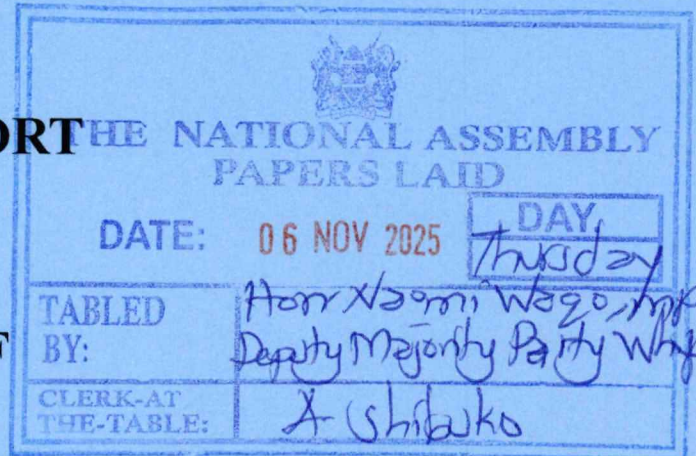 ORT
THE NATIONAL ASSEMBLY
PAPERS LAID
DATE: 06 NOV 2025
DAY
Thursday
TABLED BY:
Hon Naomi Waqo, MP
Deputy Majority Party Whip
F
CLERK-AT THE-TABLE:
A Shibuko